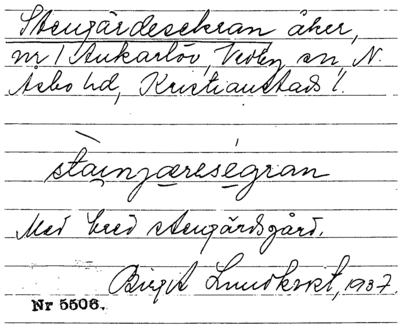 Stengärdesekran åker,
nr 1 Aukarlöv, Vedby sn, N.
Åsbo hd, Kristianstads l.
stainjæreségran
Med bred stengärdsgård.
Birgit Lundkvist, 1937.
Nr 5506.